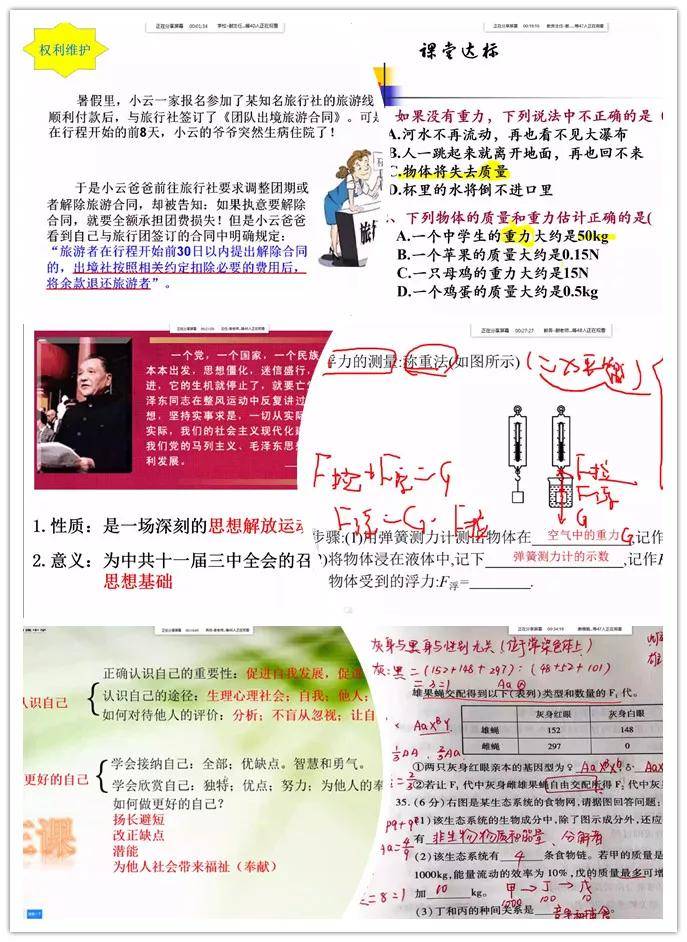 正在分享屏幕 00:01:34
权利维护
暑假里，小云一家报名参加了某知名旅行社的旅游线
顺利付款后，与旅行社签订了《团队出境旅游合同》。可是
在行程开始的前8天，小云的爷爷突然生病住院了！
于是小云爸爸前往旅行社要求调整团期或
者解除旅游合同，却被告知：如果执意要解除
合同，就要全额承担团费损失！但是小云爸爸
看到自己与旅行团签订的合同中明确规定：
“旅游者在行程开始前30日以内提出解除合同
的，出境社按照相关约定扣除必要的费用后，
将余款退还旅游者”。
旅
正在分享屏幕
课堂达标
如果没有重力，下列说法中不正确的是（
A.河水不再流动，再也看不见大瀑布
B.人一跳起来就离开地面，再也回不来
C.物体将失去质量
D.杯里的水将倒不进口里
、下列物体的质量和重力估计正确的是(
A.一个中学生的重力大约是50kg
B.一个苹果的质量大约是0.15N
C.一只母鸡的重力大约是15N
D.一个鸡蛋的质量大约是0.5kg
正在分享屏幕
一个党，一个国家，一个民族
本本出发，思想僵化，迷信盛行，
进，它的生机就停止了，就要亡
泽东同志在整风运动中反复讲过
想，坚持实事求是，一切从实际
实际，我们的社会主义现代化建
我们党的马列主义、毛泽东思想
利发展。
1.性质：是一场深刻的思想解放运动
2.意义：为中共十一届三中全会的召
思想基础
正在分享屏幕 00:27:27
浮力的测量:称重法(如图所示)
(二力平衡)
F拉+F浮=G
F浮=G-F拉
F拉
F浮
G
步骤:(1)用弹簧测力计测出物体在空气中的重力G,记作
)将物体浸在液体中,记下弹簧测力计的示数,记作F
物体受到的浮力:F浮=
正在分享屏幕
认识自己
正确认识自己的重要性：促进自我发展，促进
认识自己的途径：生理心理社会；自我；他人；
如何对待他人的评价：分析；不盲从忽视；让自
更好的自己
学会接纳自己：全部；优缺点。智慧和勇气。
学会欣赏自己：独特；优点；努力；为他人的奉
如何做更好的自己？
扬长避短
改正缺点
潜能
为他人社会带来福祉（奉献）
课
正在分享屏幕 00:34:19
灰身与黑身与性别无关(位于常染色体上)
灰:黑=(152+148+297):(48+52+101)
=3:1 Aa
雄果蝇交配得到以下(表列)类型和数量的F₁代。
灰身红眼 灰身白眼
雄蝇 152 148
雌蝇 297 0
AaXᴮY
①两只灰身红眼亲本的基因型为♀
②若让F₁代中灰身雌雄果蝇自由交配所得F₂代中灰
35.(6分)右图是某生态系统的食物网,请据图回答问题:
(1)该生态系统的生物成分中,除了图示成分外,还应
有非生物物质和能量、分解者
(2)该生态系统有4条食物链。若甲的质量是
1000kg,能量流动的效率为10%,戊的质量最多可增
加10kg。
甲→丁→戊
1000 100 10
(3)丁和丙的种间关系是竞争和捕食